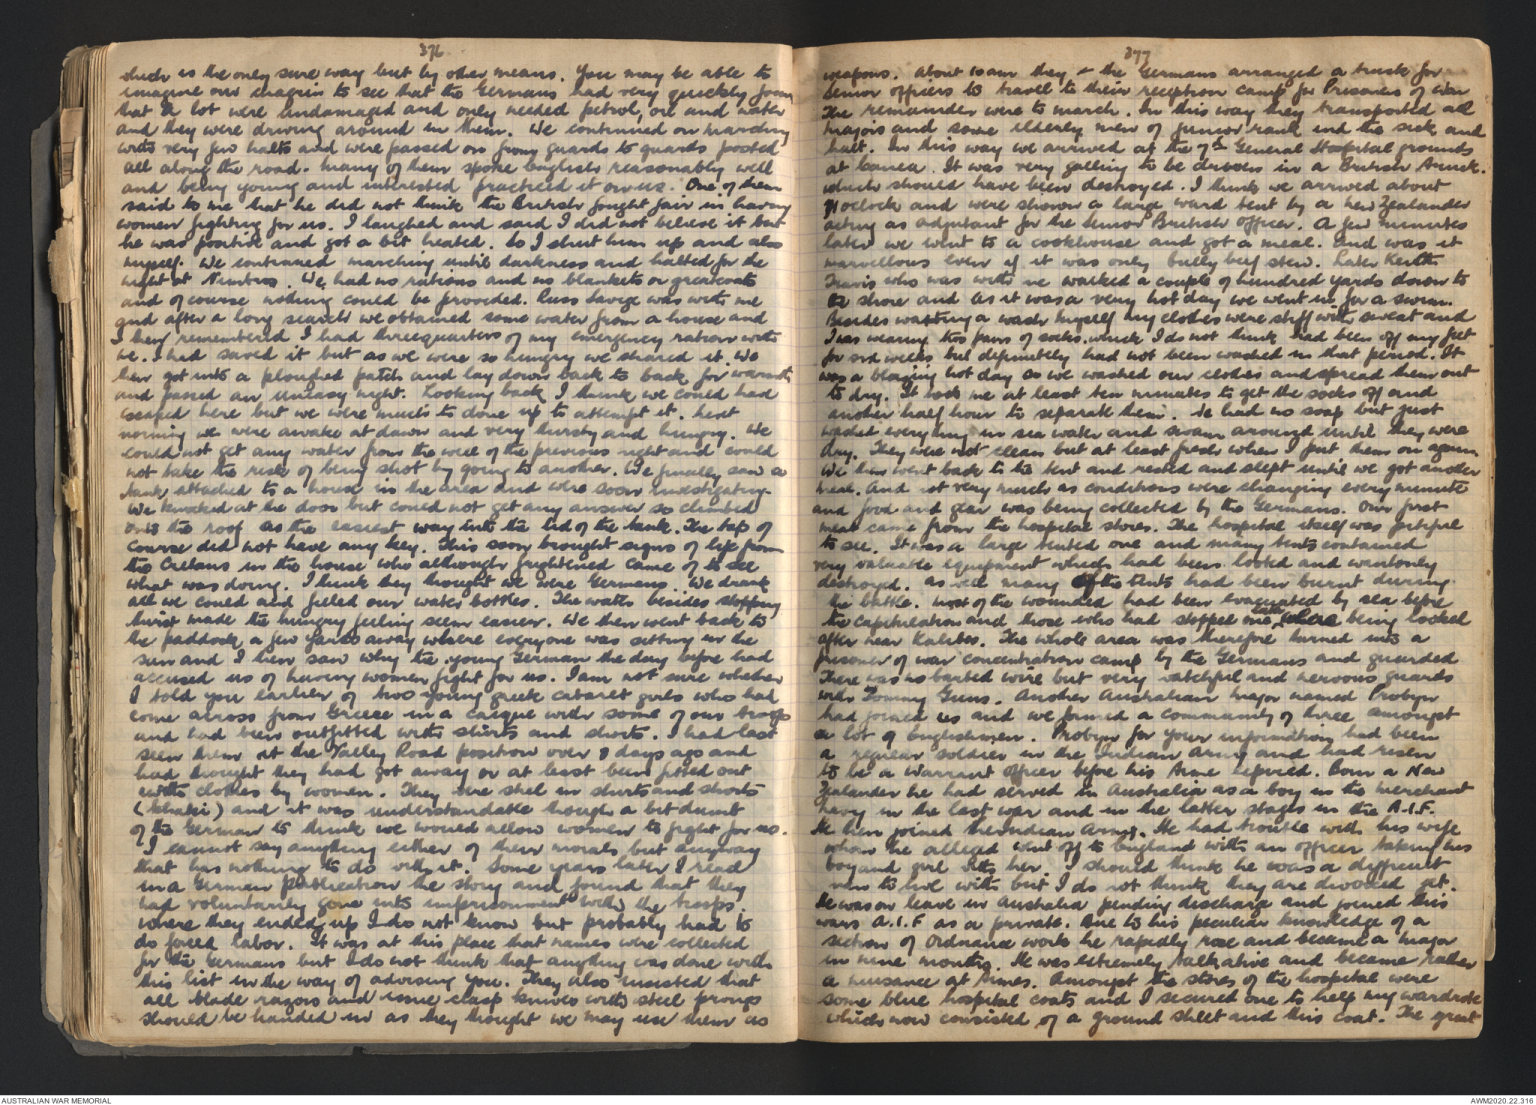 376
which is the only sure way but by other means. You may be able to
imagine our chagrin to see that the Germans had very quickly found
that a lot were undamaged and only needed petrol, oil and water
and they were driving around in them. We continued on marching
with very few halts and were passed on from guards to guards posted
all along the road. Many of them spoke English reasonably well
and being young and interested practiced it on us. One of them
said to me that he did not think the British fought fair in having
women fighting for us. I laughed and said I did not believe it but
he was positive and got a bit heated. So I shut him up and also
myself. We continued marching until darkness and halted for the
night at Nimbros. We had no rations and no blankets or greatcoats
and of course nothing could be provided. Russ Savige was with me
and after a long search we obtained some water from a house and
I then remembered I had threequarters of my emergency ration with
me. I had saved it but as we were so hungry we shared it. We
then got into a ploughed patch and lay down back to back for warmth
and passed an uneasy night. Looking back I think we could had
escaped here but we were much to done up to attempt it. Next
morning we were awake at dawn and very thirsty and hungry. We
could not get any water from the well of the previous night and could
not take the risk of being shot by going to another. We finally saw a
tank attached to a house in the area and were soon investigating.
We knocked at the door but could not get any answer so climbed
onto the roof as the easiest way into the lid of the tank. The tap of
course did not have any key. This soon brought signs of life from
the Cretans in the house who although frightened came of to see
what was doing. I think they thought we were Germans. We drank
all we could and filled our water bottles. The water besides stopping
thirst made the hungry feeling seem easier. We then went back to
the paddock a few yards away where everyone was sitting in the
sun and I then saw why the young German the day before had
accused us of having women fight for us. I am not sure whether
I told you earlier of two young greek cabaret girls who had
come across from Greece in a caique with some of our troops
and had been outfitted with shirts and shorts. I had last
seen them at the Valley Road position over 8 days ago and
had thought they had got away or at least been fitted out
with clothes by women. They were still in shirts and shorts
(khaki) and it was understandable though a bit dumb
of the German to think we would allow women to fight for us.
I cannot say anything either of their morals but anyway
that has nothing to do with it. Some years later I read
in a German publication the story and found that they
had voluntarily gone into imprisonment with the troops
where they ended up I do not know but probably had to
do forced labor. It was at this place that names were collected
for the Germans but I do not think that anything was done with
this list in the way of advising you. They also insisted that
all blade razors and issue clasp knives with steel prongs
should be handed in as they thought we may use them as
377
weapons. About 10 am they - the Germans arranged a truck for
senior officers to travel to their reception camp for Prisoners of War
The remainder were to march. In this way they transported all
majors and some elderly men of junior rank and the sick and
halt. In this way we arrived at the 7th General Hospital grounds
at Canea. It was very galling to be driven in a British truck.
which should have been destroyed. I think we arrived about
oclock and were shown a large ward tent by a New Zealander
acting as adjutant for the senior British officer. A few minutes
later we went to a cookhouse and got a meal. And was it
marvellous even if it was only bully beef stew. Later Keith
Travis who was with me walked a couple of hundred yards down to
the shore and as it was a very hot day we went in for a swim.
Besides wanting a wash myself my clothes were stiff with sweat and
I was wearing two pairs of socks which I do not think had been off my feet
for weeks but definitely had not been washed in that period. It
was a blazing hot day so we washed our clothes and spread them out
to dry. It took me at least ten minutes to get the socks off and
another half hour to separate them. We had no soap but just
washed everything in sea water and swam around until they were
dry. They were not clean but at least fresh when I put them on again.
We then went back to the tent and rested and slept until we got another
meal. And not very much as conditions were changing every minute
and food and gear was being collected by the Germans. Our first
meal came from the hospital stores. The hospital itself was pitiful
to see. It was a large tented one and many tents contained
very valuable equipment which had been looted and wantonly
destroyed. As well many of the tents had been burnt during
the battle. Most of the wounded had been evacuated by sea before
the capitulation and those who had stopped one later were being looked
after near Kalibes. The whole area was therefore turned into a
prisoner of war concentration camp by the Germans and guarded
There was no barbed wire but very watchful and nervous guards
with Tommy Guns. Another Australian major named Probyn
had joined us and we formed a community of three amongst
a lot of Englishmen. Probyn for your information had been
a regular soldier in the Indian Army and had risen
to be a Warrant Officer before his time expired. Born a New
Zealander he had served in Australia as a boy in the merchant
navy in the last war and in the latter stages in the A.I.F.
He then joined the Indian Army. He had trouble with his wife
whom he alleged went off to England with an officer taking his
boy and girl with her. I should think he was a difficult
man to live with but I do not think they are divorced yet.
He was on leave in Australia pending discharge and joined this
wars A.I.F as a private. Due to his peculiar knowledge of a
section of Ordnance work he rapidly rose and became a major
in nine months. He was extremely talkative and became rather
a nuisance at times. Amongst the stores of the hospital were
some blue hospital coats and I secured one to help my wardrobe
which now consisted of a ground sheet and this coat. The great
AUSTRALIAN WAR MEMORIAL
AWM2020.22.316